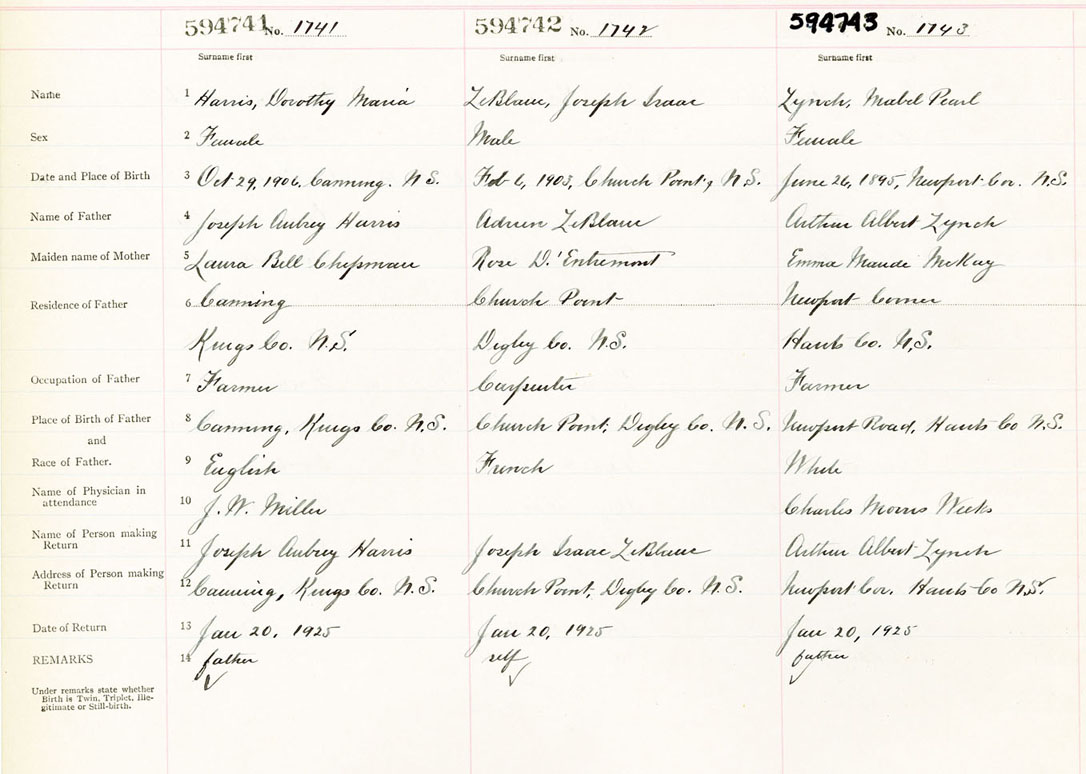 594741 No. 1741 594742 No. 1742 594743 No. 1743
Surname first Surname first Surname first
Name 1 Harris, Dorothy Maria LeBlanc, Joseph Isaac Lynch, Mabel Pearl
Sex 2 Female Male Female
Date and Place of Birth 3 Oct 29, 1906, Canning. N.S. Feb 6, 1903, Church Point, N.S. June 26, 1895, Newport Cor. N.S.
Name of Father 4 Joseph Aubrey Harris Adrien LeBlanc Arthur Albert Lynch
Maiden name of Mother 5 Laura Bell Chipman Rose D'Entremont Emma Maude McKay
Residence of Father 6 Canning Church Point Newport Corner
Kings Co. N.S. Digby Co. N.S. Hants Co. N.S.
Occupation of Father 7 Farmer Carpenter Farmer
Place of Birth of Father 8 Canning, Kings Co. N.S. Church Point, Digby Co. N.S. Newport Road, Hants Co N.S.
and
Race of Father. 9 English French White
Name of Physician in
attendance 10 J. W. Miller Charles Morris Weeks
Name of Person making
Return 11 Joseph Aubrey Harris Joseph Isaac LeBlanc Arthur Albert Lynch
Address of Person making
Return 12 Canning, Kings Co. N.S. Church Point, Digby Co. N.S. Newport Cor. Hants Co N.S.
Date of Return 13 Jan 20, 1925 Jan 20, 1925 Jan 20, 1925
REMARKS 14 father self father
Under remarks state whether
Birth is Twin, Triplet, Ille-
gitimate or Still-birth.